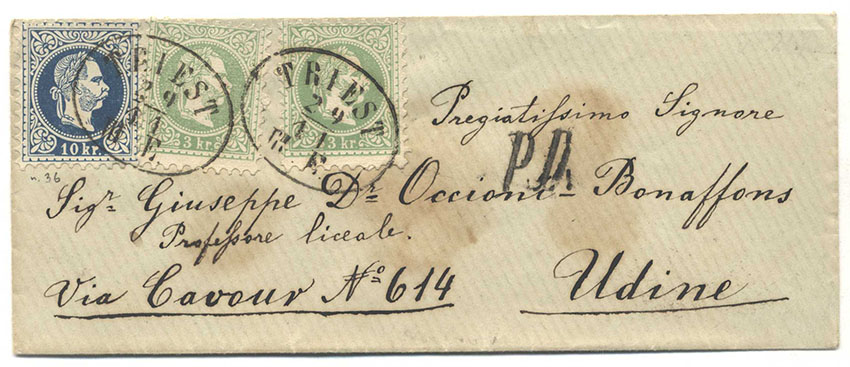 10 kr.
3 kr.
3 kr.
TRIEST
29
11
M.E
TRIEST
29
11
M.E
P.D.
n. 36
Pregiatissimo Signore
Sigr Giuseppe Dr Occioni-Bonaffons
Professore liceale.
Via Cavour No 614
Udine